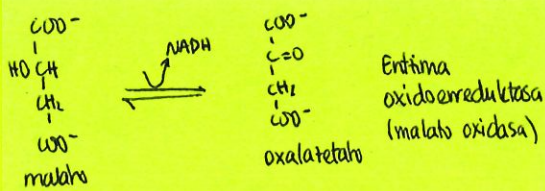 COO⁻
HO CH
CH₂
COO⁻
malato
NADH
COO⁻
C=O
CH₂
COO⁻
oxalazetato
Entzima
oxidoerreduktasa
(malato oxidasa)